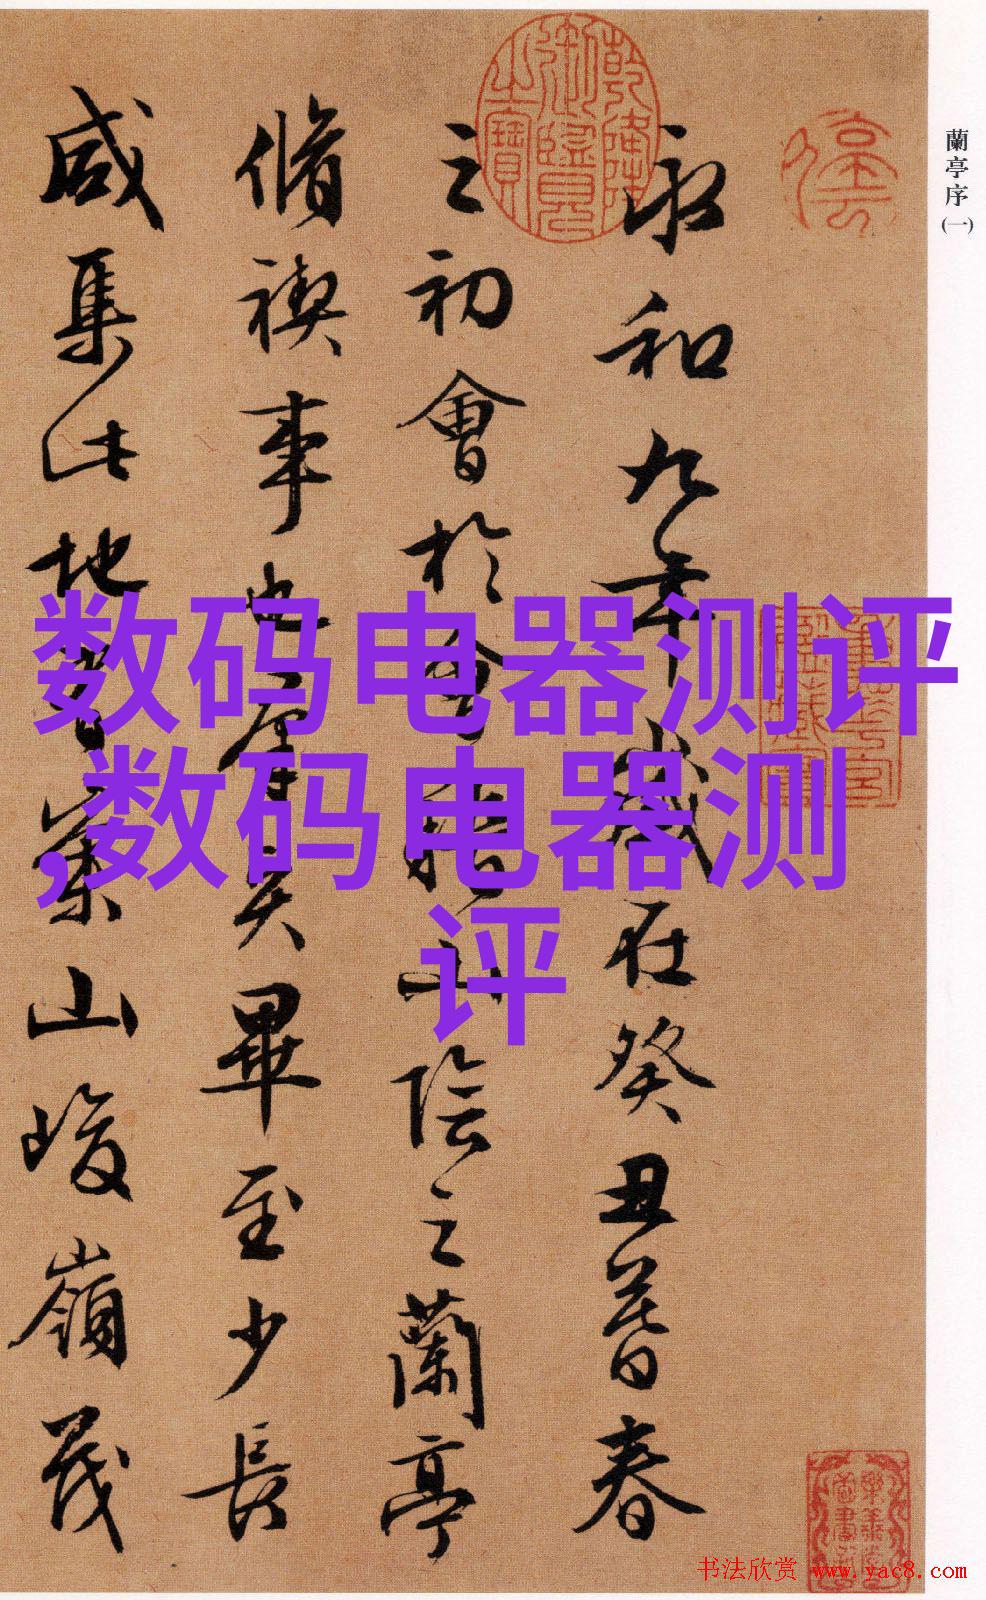 蘭亭序
(一)
永和九年歲在癸丑暮春
之初會於會稽山陰之蘭亭
脩禊事也羣賢畢至少長
咸集此地有崇山峻嶺茂
乾隆御覽之寶
数码电器测评
,数码电器测
评
书法欣赏 www.yac8.com